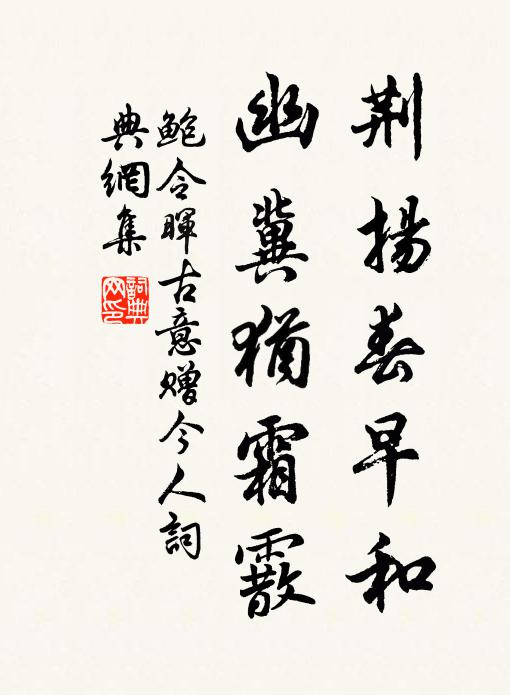 荆揚春早和
幽冀猶霜霰
鮑令暉古意贈今人詞
典網集
詞典
网印